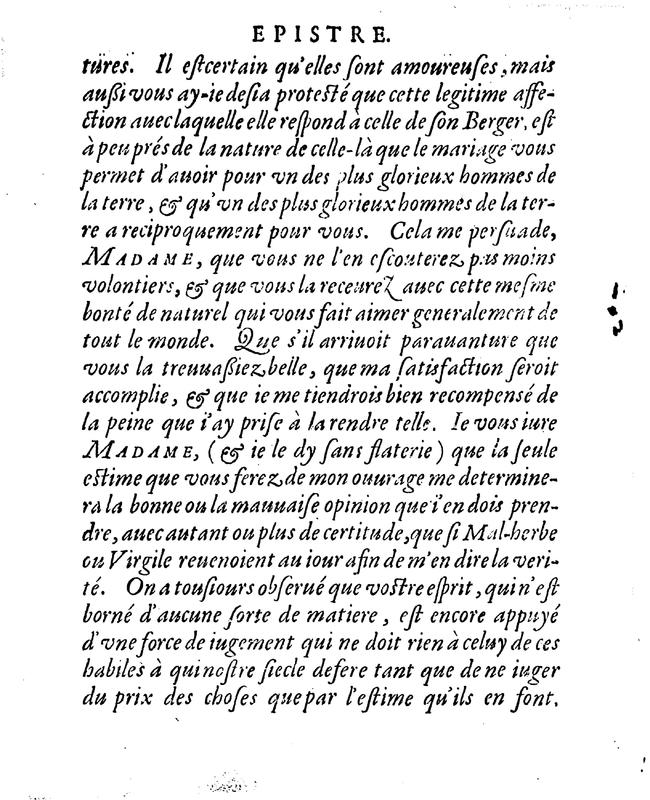 EPISTRE.
tures. Il est certain qu'elles ſont amoureuſes, mais
auſſi vous ay-ie deſia proteſté que cette legitime affe-
ction auec laquelle elle reſpond à celle de ſon Berger, eſt
à peu prés de la nature de celle-là que le mariage vous
permet d'auoir pour vn des plus glorieux hommes de
la terre, & qu'vn des plus glorieux hommes de la ter-
re a reciproquement pour vous. Cela me perſuade,
MADAME, que vous ne l'en eſcouterez pas moins
volontiers, & que vous la receurez auec cette meſme
bonté de naturel qui vous fait aimer generalement de
tout le monde. Que s'il arriuoit parauanture que
vous la treuuaſſiez belle, que ma ſatisfaction ſeroit
accomplie, & que ie me tiendrois bien recompensé de
la peine que i'ay priſe à la rendre telle. Ie vous iure
MADAME, (& ie le dy ſans flaterie) que la ſeule
eſtime que vous ferez de mon ouurage me determine-
ra la bonne ou la mauuaiſe opinion que i'en dois pren-
dre, auec autant ou plus de certitude, que ſi Mal-herbe
ou Virgile reuenoient au iour afin de m'en dire la veri-
té. On a touſiours obſerué que voſtre eſprit, qui n'eſt
borné d'aucune ſorte de matiere, eſt encore appuyé
d'vne force de iugement qui ne doit rien à celuy de ces
habiles à qui noſtre ſiecle defere tant que de ne iuger
du prix des choſes que par l'eſtime qu'ils en font.